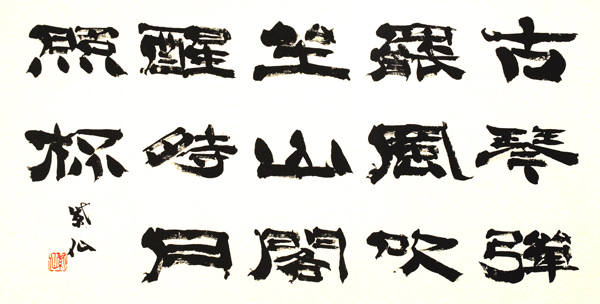 古琴彈
罷風吹
坐山閣
醒時月
照杯
紫仙